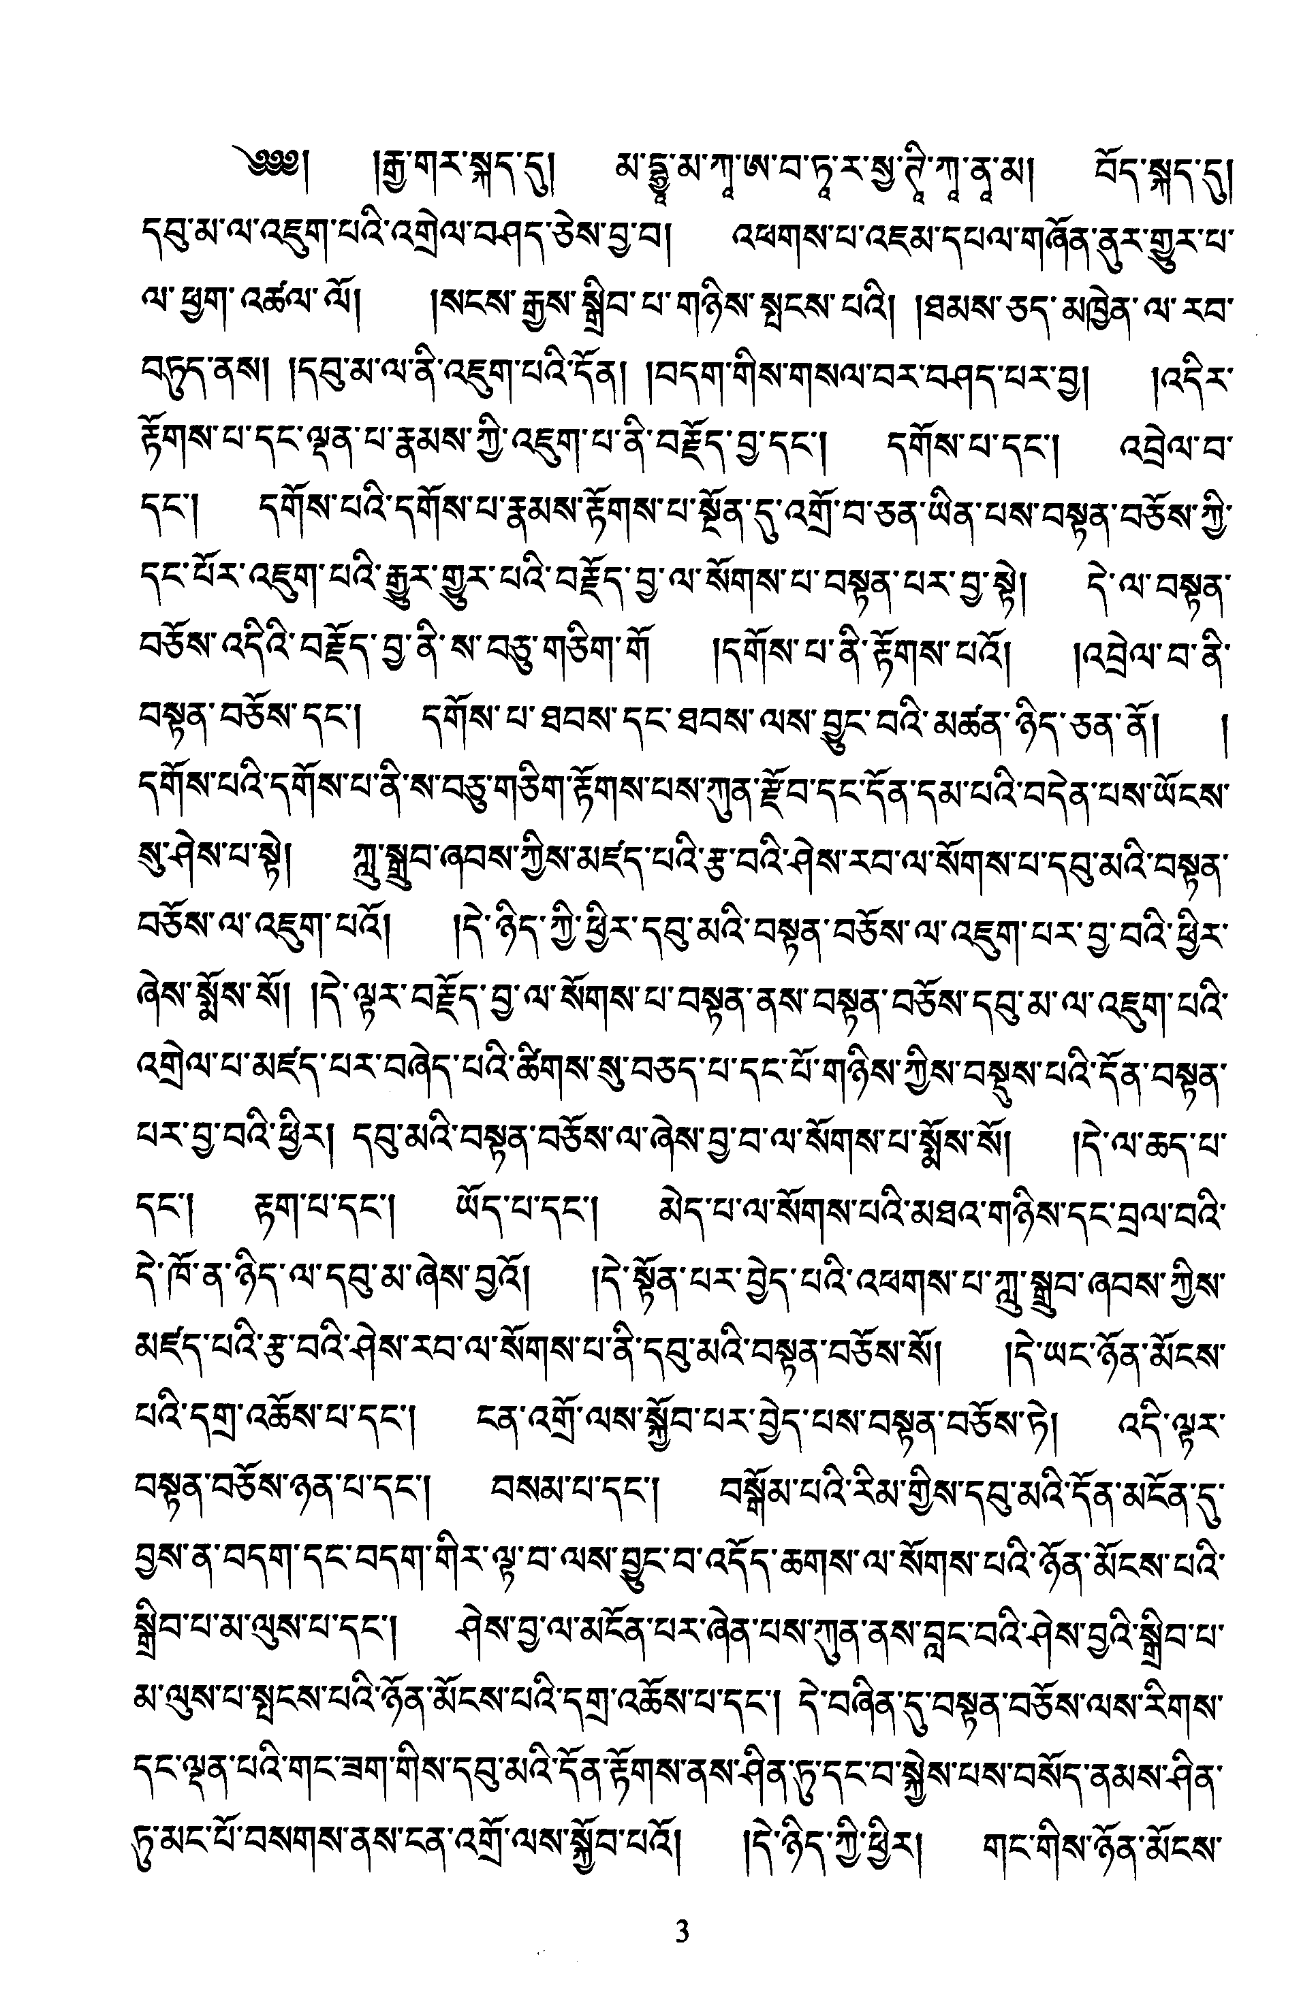 ༄༅༅། །རྒྱ་གར་སྐད་དུ། མ་དྷྱ་མ་ཀཱ་ཨ་བ་ཏཱ་ར་སྱ་ཊཱི་ཀཱ་ནཱ་མ། བོད་སྐད་དུ།
དབུ་མ་ལ་འཇུག་པའི་འགྲེལ་བཤད་ཅེས་བྱ་བ། འཕགས་པ་འཇམ་དཔལ་གཞོན་ནུར་གྱུར་པ་
ལ་ཕྱག་འཚལ་ལོ། །སངས་རྒྱས་སྒྲིབ་པ་གཉིས་སྤངས་པའི། །ཐམས་ཅད་མཁྱེན་ལ་རབ་
བཏུད་ནས། །དབུ་མ་ལ་ནི་འཇུག་པའི་དོན། །བདག་གིས་གསལ་བར་བཤད་པར་བྱ། །འདིར་
རྟོགས་པ་དང་ལྡན་པ་རྣམས་ཀྱི་འཇུག་པ་ནི་བརྗོད་བྱ་དང༌། དགོས་པ་དང༌། འབྲེལ་བ་
དང༌། དགོས་པའི་དགོས་པ་རྣམས་རྟོགས་པ་སྔོན་དུ་འགྲོ་བ་ཅན་ཡིན་པས་བསྟན་བཅོས་ཀྱི་
དང་པོར་འཇུག་པའི་རྒྱུར་གྱུར་པའི་བརྗོད་བྱ་ལ་སོགས་པ་བསྟན་པར་བྱ་སྟེ། དེ་ལ་བསྟན་
བཅོས་འདིའི་བརྗོད་བྱ་ནི་ས་བཅུ་གཅིག་གོ །དགོས་པ་ནི་རྟོགས་པའོ། །འབྲེལ་བ་ནི་
བསྟན་བཅོས་དང༌། དགོས་པ་ཐབས་དང་ཐབས་ལས་བྱུང་བའི་མཚན་ཉིད་ཅན་ནོ། །
དགོས་པའི་དགོས་པ་ནི་ས་བཅུ་གཅིག་རྟོགས་པས་ཀུན་རྫོབ་དང་དོན་དམ་པའི་བདེན་པས་ཡོངས་
སུ་ཤེས་པ་སྟེ། ཀླུ་སྒྲུབ་ཞབས་ཀྱིས་མཛད་པའི་རྩ་བའི་ཤེས་རབ་ལ་སོགས་པ་དབུ་མའི་བསྟན་
བཅོས་ལ་འཇུག་པའོ། །དེ་ཉིད་ཀྱི་ཕྱིར་དབུ་མའི་བསྟན་བཅོས་ལ་འཇུག་པར་བྱ་བའི་ཕྱིར་
ཞེས་སྨོས་སོ། །དེ་ལྟར་བརྗོད་བྱ་ལ་སོགས་པ་བསྟན་ནས་བསྟན་བཅོས་དབུ་མ་ལ་འཇུག་པའི་
འགྲེལ་པ་མཛད་པར་བཞེད་པའི་ཚིགས་སུ་བཅད་པ་དང་པོ་གཉིས་ཀྱིས་བསྡུས་པའི་དོན་བསྟན་
པར་བྱ་བའི་ཕྱིར། དབུ་མའི་བསྟན་བཅོས་ལ་ཞེས་བྱ་བ་ལ་སོགས་པ་སྨོས་སོ། །དེ་ལ་ཆད་པ་
དང༌། རྟག་པ་དང༌། ཡོད་པ་དང༌། མེད་པ་ལ་སོགས་པའི་མཐའ་གཉིས་དང་བྲལ་བའི་
དེ་ཁོ་ན་ཉིད་ལ་དབུ་མ་ཞེས་བྱའོ། །དེ་སྟོན་པར་བྱེད་པའི་འཕགས་པ་ཀླུ་སྒྲུབ་ཞབས་ཀྱིས་
མཛད་པའི་རྩ་བའི་ཤེས་རབ་ལ་སོགས་པ་ནི་དབུ་མའི་བསྟན་བཅོས་སོ། །དེ་ཡང་ཉོན་མོངས་
པའི་དགྲ་འཆོས་པ་དང༌། ངན་འགྲོ་ལས་སྐྱོབ་པར་བྱེད་པས་བསྟན་བཅོས་ཏེ། འདི་ལྟར་
བསྟན་བཅོས་ཉན་པ་དང༌། བསམ་པ་དང༌། བསྒོམ་པའི་རིམ་གྱིས་དབུ་མའི་དོན་མངོན་དུ་
བྱས་ན་བདག་དང་བདག་གིར་ལྟ་བ་ལས་བྱུང་བ་འདོད་ཆགས་ལ་སོགས་པའི་ཉོན་མོངས་པའི་
སྒྲིབ་པ་མ་ལུས་པ་དང༌། ཤེས་བྱ་ལ་མངོན་པར་ཞེན་པས་ཀུན་ནས་བླང་བའི་ཤེས་བྱའི་སྒྲིབ་པ་
མ་ལུས་པ་སྤངས་པའི་ཉོན་མོངས་པའི་དགྲ་འཆོས་པ་དང༌། དེ་བཞིན་དུ་བསྟན་བཅོས་ལས་རིགས་
དང་ལྡན་པའི་གང་ཟག་གིས་དབུ་མའི་དོན་རྟོགས་ནས་ཤིན་ཏུ་དང་བ་སྐྱེས་པས་བསོད་ནམས་ཤིན་
ཏུ་མང་པོ་བསགས་ནས་ངན་འགྲོ་ལས་སྐྱོབ་པའོ། །དེ་ཉིད་ཀྱི་ཕྱིར། གང་གིས་ཉོན་མོངས་
3